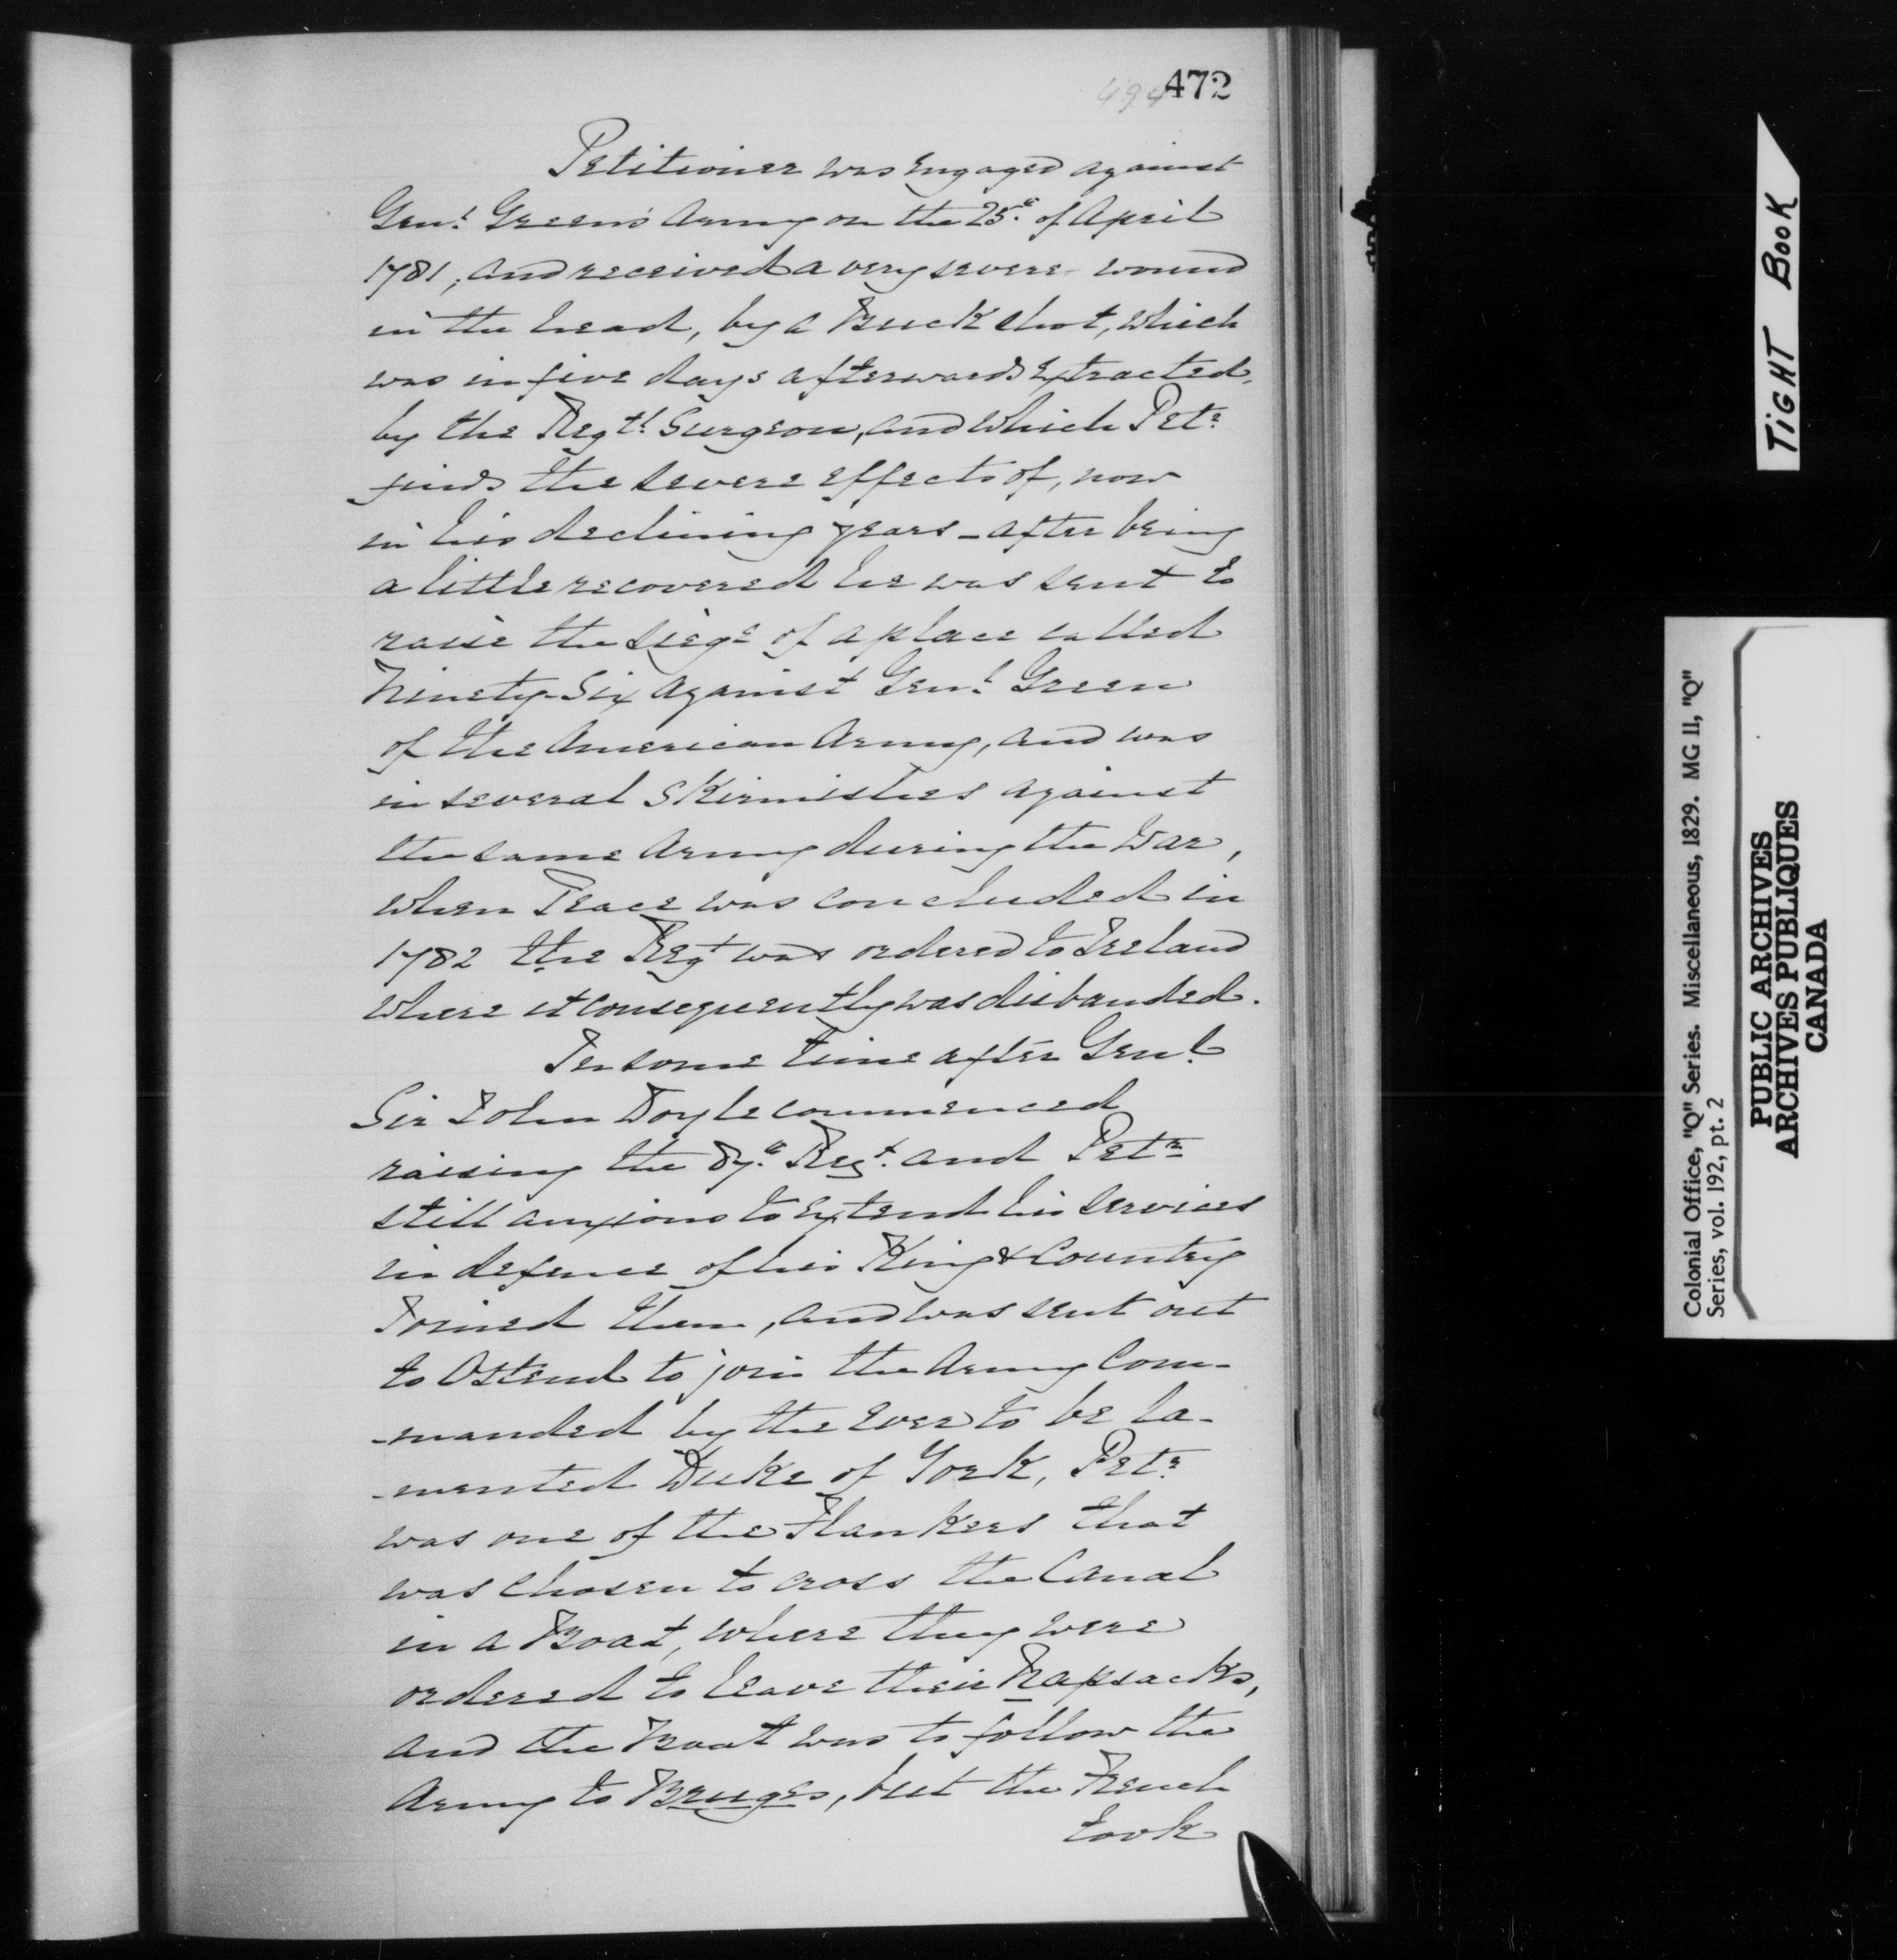 494 472
Petitioner was Engaged against
Genl. Green's Army on the 25th. of April
1781, and received a very severe wound
in the head, by a Buck shot, which
was in five days afterwards Extracted,
by the Regtl. Surgeon, and which Petr.
finds the severe effects of, now
in his declining years - after being
a little recovered he was sent to
raise the siege of a place called
Ninety-Six against Genl. Green
of the American Army, and was
in several Skirmishes against
the same Army during the War,
when Peace was concluded in
1782 the Regt was ordered to Ireland
where it consequently was disbanded.
In some time after Genl.
Sir John Doyle commenced
raising the 87th. Regt. and Petr.
still anxious to Extend his services
in defence of his King & Country
Joined them, and was sent out
to Ostend to join the Army Com-
-manded by the Ever to be la-
-mented Duke of York, Petr.
was one of the Flankers that
was chosen to cross the Canal
in a Boat, where they were
ordered to leave their Napsacks,
and the Boat was to follow the
Army to Bruges, but the French
took
TIGHT BOOK
Colonial Office, "Q" Series. Miscellaneous, 1829. MG 11, "Q"
Series, vol. 192, pt. 2
PUBLIC ARCHIVES
ARCHIVES PUBLIQUES
CANADA